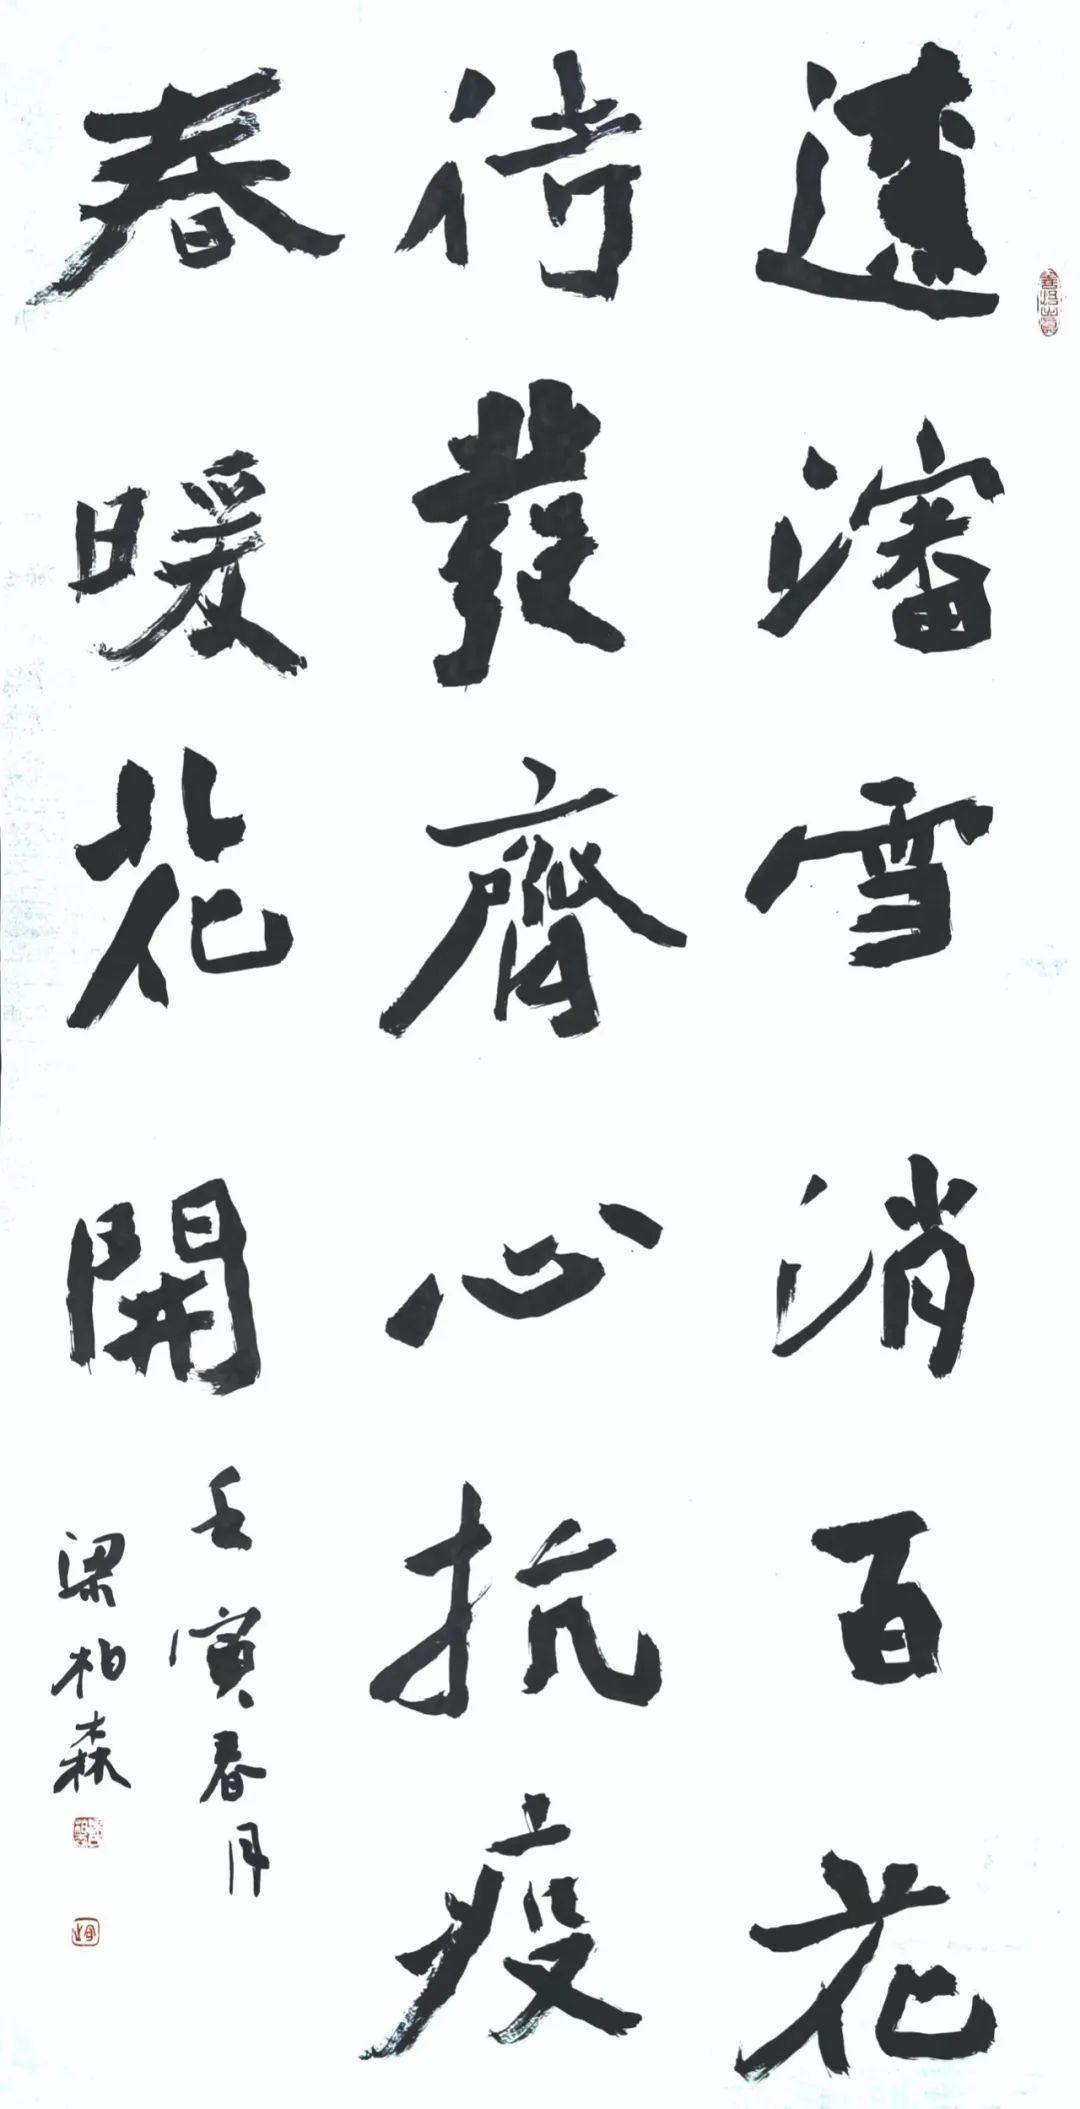 遼瀋雪消百花
待發齊心抗疫
春暖花開
壬寅春月
梁柏森